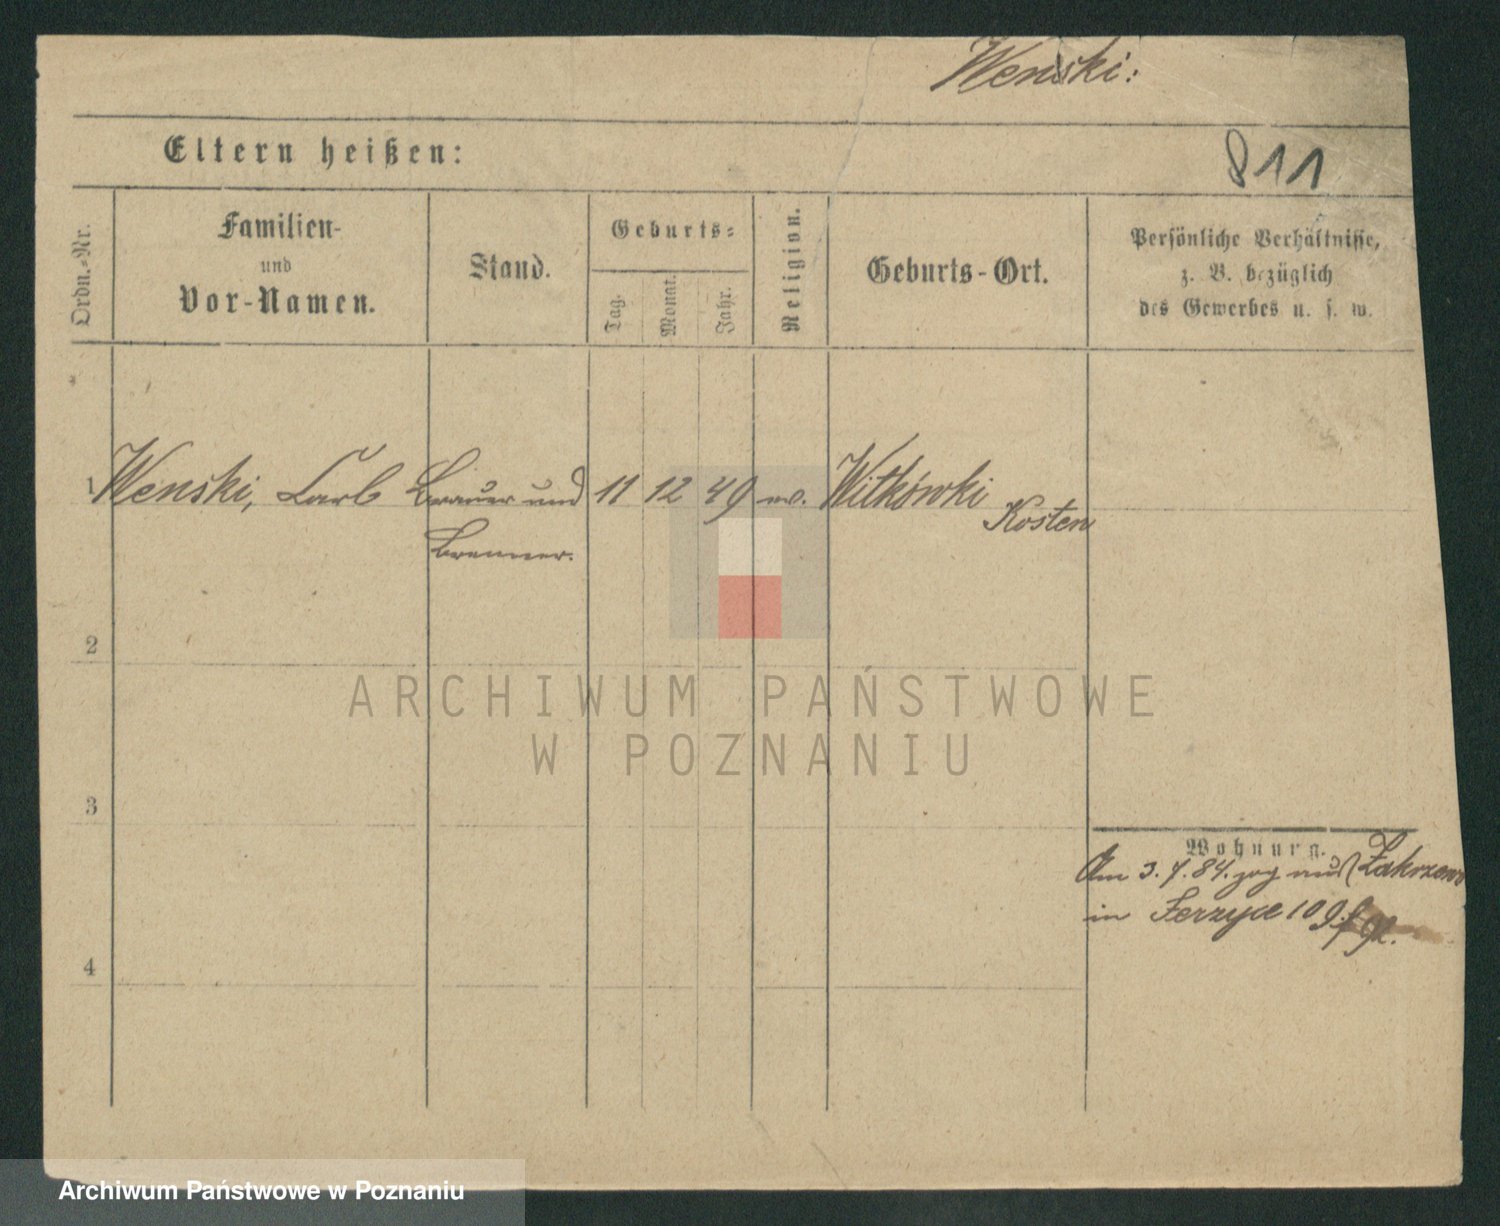 Wenski:
Eltern heißen:
811
Ordn.-Nr.
Familien-
und
Vor-Namen.
Stand.
Geburts-
Tag.
Monat.
Jahr.
Religion.
Geburts-Ort.
Persönliche Verhältnisse,
z. B. bezüglich
des Gewerbes u. s. w.
1 Wenski, Carl Brauer und 11 12 49 ev. Witkówki
Kosten
Brenner.
2
ARCHIWUM PAŃSTWOWE
W POZNANIU
3
Wohnung.
Am 3. 7. 84. zog aus Zakrzewo
in Jerzyce 109
4
Archiwum Państwowe w Poznaniu